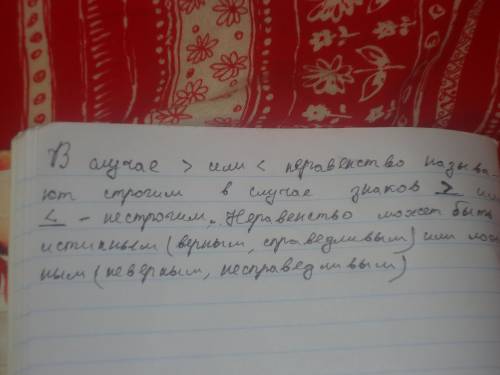 В случае > или < неравенство называ-
ют строгим в случае знаков ≥ или
≤ - нестрогим. Неравенство может быть
истинным (верным, справедливым) или лож
ным (неверным, несправедливым)